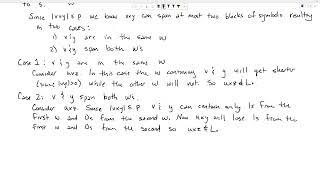 to s. w
Since |vxy| ≤ p we know vxy can span at most two blocks of symbols resulting
in two cases:
1) v & y are in the same w
2) v & y span both ws
Case 1: v & y are in the same w
Consider uxz. In this case the w containing v & y will get shorter
(since |vy|>0) while the other w will not so uxz ∉ L.
Case 2: v & y span both ws.
Consider uxz. Since |vxy| ≤ p v & y can contain only 1s from the
first w and 0s from the second w. Now uxy will lose 1s from the
first w and 0s from the second so uxz ∉ L.